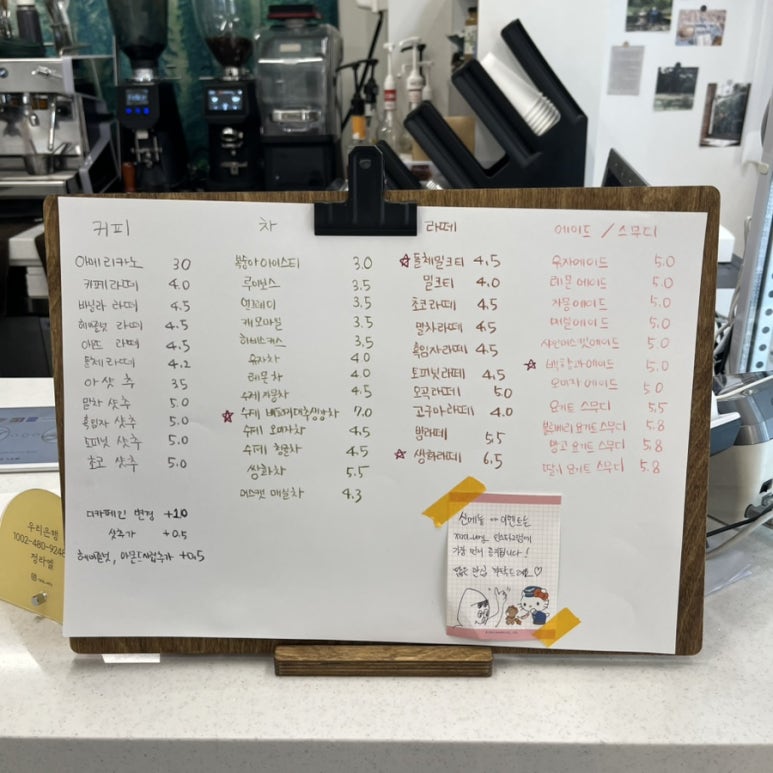 커피
아메리카노 3.0
카페라떼 4.0
바닐라 라떼 4.5
헤이즐넛 라떼 4.5
아몬드 라떼 4.5
돌체라떼 4.2
아샷추 3.5
말차 샷추 5.0
흑임자 샷추 5.0
토피넛 샷추 5.0
초코 샷추 5.0
디카페인 변경 +1.0
샷추가 +0.5
헤이즐넛, 아몬드시럽추가 +0.5
차
복숭아 아이스티 3.0
루이보스 3.5
얼그레이 3.5
캐모마일 3.5
히비스커스 3.5
유자차 4.0
레몬차 4.0
수제자몽차 4.5
☆ 수제 대추생강차 7.0
수제 오미자차 4.5
수제 4.5
쌍화차 5.5
머스캣 매실차 4.3
라떼
☆ 돌체밀크티 4.5
밀크티 4.0
초코라떼 4.5
말차라떼 4.5
흑임자라떼 4.5
토피넛라떼 4.5
오곡라떼 5.0
고구마라떼 4.0
밤라떼 5.5
☆ 쌍화라떼 6.5
에이드 / 스무디
유자에이드 5.0
레몬에이드 5.0
자몽에이드 5.0
매실에이드 5.0
샤인머스켓에이드 5.0
☆ 백향과에이드 5.0
오미자 에이드 5.0
요거트 스무디 5.5
블루베리 요거트스무디 5.8
망고 요거트 스무디 5.8
딸기 요거트 스무디 5.8
신메뉴 이벤트는
인스타그램에
가장 먼저 공지됩니다!
많은 관심 부탁드려요♡
우리은행
1002-480-9248
정라엘